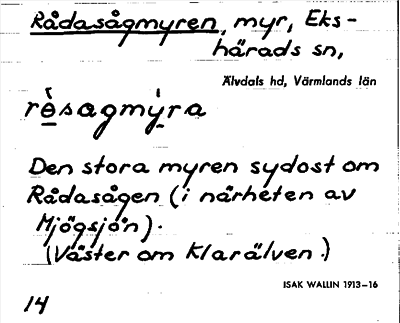 Rådasågmyren, myr, Eks-
härads sn,
Älvdals hd, Värmlands län
Den stora myren sydost om
Rådasågen (i närheten av
Mjögsjön).
(Väster om Klarälven.)
ISAK WALLIN 1913–16
14